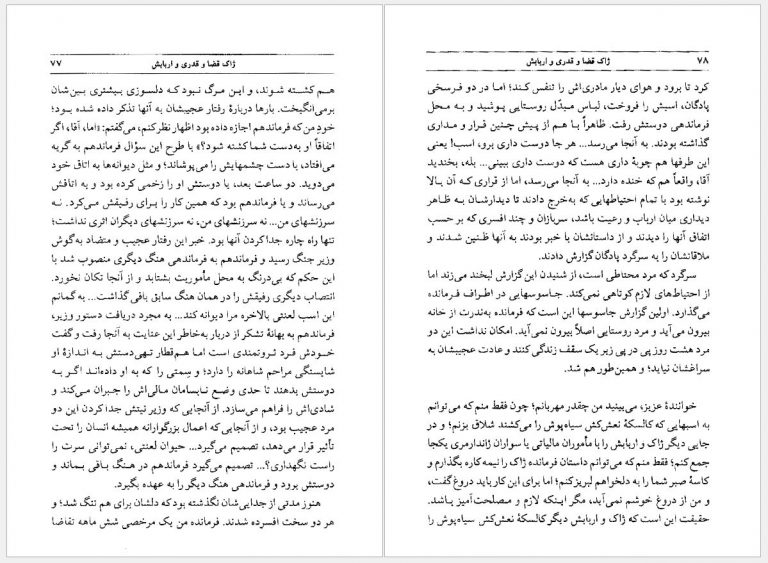 ژاک قضا و قدری و اربابش ۷۷
هم کشته شوند، و این مرگ نبود که دلسوزی بیشتری بین‌شان
برمی‌انگیخت. بارها دربارهٔ رفتار عجیبشان به آنها تذکر داده شده بود؛
خودِ من که فرمانده‌م اجازه داده بود اظهار نظر کنم، می‌گفتم: «اما، آقا، اگر
اتفاقاً او به‌دست شما کشته شود؟» با طرح این سؤال فرمانده‌م به گریه
می‌افتاد، با دست چشمهایش را می‌پوشاند؛ و مثل دیوانه‌ها به اتاق خود
می‌دوید. دو ساعت بعد، یا دوستش او را زخمی کرده بود و به اتاقش
می‌رساند و یا فرمانده‌م بود که همین کار را برای رفیقش می‌کرد. نه
سرزنشهای من... نه سرزنشهای من، نه سرزنشهای دیگران اثری نداشت؛
تنها راه چاره جدا کردن آنها بود. خبر این رفتار عجیب و متضاد به‌گوش
وزیر جنگ رسید و فرمانده‌م به فرماندهی هنگ دیگری منصوب شد با
این حکم که بی‌درنگ به محل مأموریت بشتابد و از آنجا تکان نخورد.
انتصاب دیگری رفیقش را در همان هنگ سابق باقی گذاشت... به گمانم
این اسب لعنتی بالاخره مرا دیوانه کند... به مجرد دریافت دستور وزیر،
فرمانده‌م به بهانهٔ تشکر از دربار به‌خاطر این عنایت به آنجا رفت و گفت
خودش فرد ثروتمندی است اما هم‌قطار تهی‌دستش به اندازهٔ او
شایستگی مراحم شاهانه را دارد؛ و سِمتی را که به او داده‌اند اگر به
دوستش بدهند تا حدی وضع نابسامان مالی‌اش را جبران می‌کند و
شادی‌اش را فراهم می‌سازد. از آنجایی که وزیر نیتش جدا کردن این دو
مرد عجیب بود، و از آنجایی که اعمال بزرگوارانه همیشه انسان را تحت
تأثیر قرار می‌دهد، تصمیم می‌گیرد... حیوان لعنتی، نمی‌توانی سرت را
راست نگهداری؟... تصمیم می‌گیرد فرمانده‌م در هنگ باقی بماند و
دوستش برود و فرماندهی هنگ دیگر را به عهده بگیرد.
هنوز مدتی از جدایی‌شان نگذشته بود که دلشان برای هم تنگ شد؛ و
هر دو سخت افسرده شدند. فرمانده من یک مرخصی شش ماهه تقاضا
۷۸ ژاک قضا و قدری و اربابش
کرد تا برود و هوای دیار مادری‌اش را تنفس کند؛ اما در دو فرسخی
پادگان، اسبش را فروخت، لباس مبدّل روستایی پوشید و به محل
فرماندهی دوستش رفت. ظاهراً با هم از پیش چنین قرار و مداری
گذاشته بودند. به آنجا می‌رسد... هر جا دوست داری برو، اسب! یعنی
این طرفها هم چوبهٔ داری هست که دوست داری ببینی... بله، بخندید
آقا، واقعاً هم که خنده دارد... به آنجا می‌رسد، اما از قراری که آن بالا
نوشته بود با تمام احتیاطهایی که به‌خرج دادند تا دیدارشان به ظاهر
دیداری میان ارباب و رعیت باشد، سربازان و چند افسری که بر حسب
اتفاق آنها را دیدند و از داستانشان با خبر بودند به آنها ظنین شدند و
ملاقاتشان را به سرگرد پادگان گزارش دادند.
سرگرد که مرد محتاطی است، از شنیدن این گزارش لبخند می‌زند اما
از احتیاط‌های لازم کوتاهی نمی‌کند. جاسوسهایی در اطراف فرمانده
می‌گذارد. اولین گزارش جاسوسها این است که فرمانده به‌ندرت از خانه
بیرون می‌آید و مرد روستایی اصلاً بیرون نمی‌آید. امکان نداشت این دو
مرد هشت روز پی در پی زیر یک سقف زندگی کنند و عادت عجیبشان به
سراغشان نیاید؛ و همین‌طور هم شد.
خوانندهٔ عزیز، می‌بینید من چقدر مهربانم؛ چون فقط منم که می‌توانم
به اسبهایی که کالسکهٔ نعش‌کش سیاه‌پوش را می‌کشند شلاق بزنم؛ و در
جایی دیگر ژاک و اربابش را با مأموران مالیاتی یا سواران ژاندارمری یکجا
جمع کنم؛ فقط منم که می‌توانم داستان فرمانده ژاک را نیمه‌کاره بگذارم و
کاسهٔ صبر شما را به دلخواهم لبریز کنم؛ اما برای این کار باید دروغ گفت،
و من از دروغ خوشم نمی‌آید، مگر اینکه لازم و مصلحت‌آمیز باشد.
حقیقت این است که ژاک و اربابش دیگر کالسکهٔ نعش‌کش سیاه‌پوش را